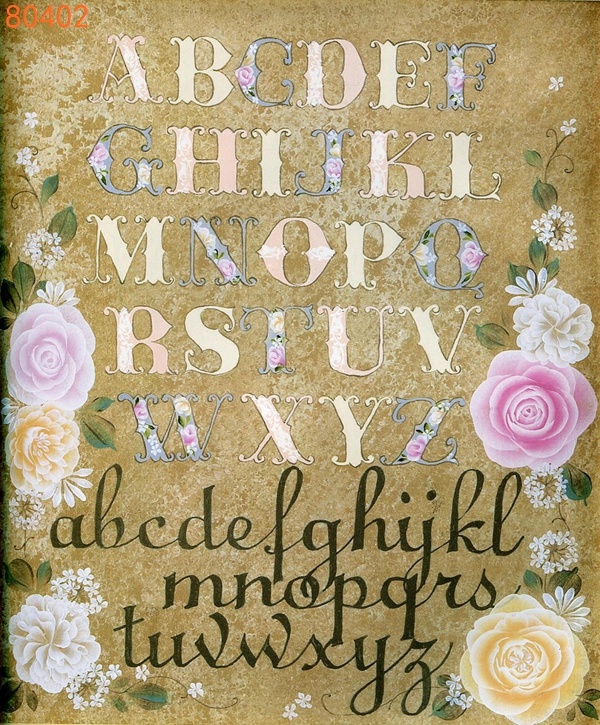 80402
ABCDEF
GHIJKL
MNOPQ
RSTUV
WXYZ
abcdefghijkl
mnopqrs
tuvwxyz